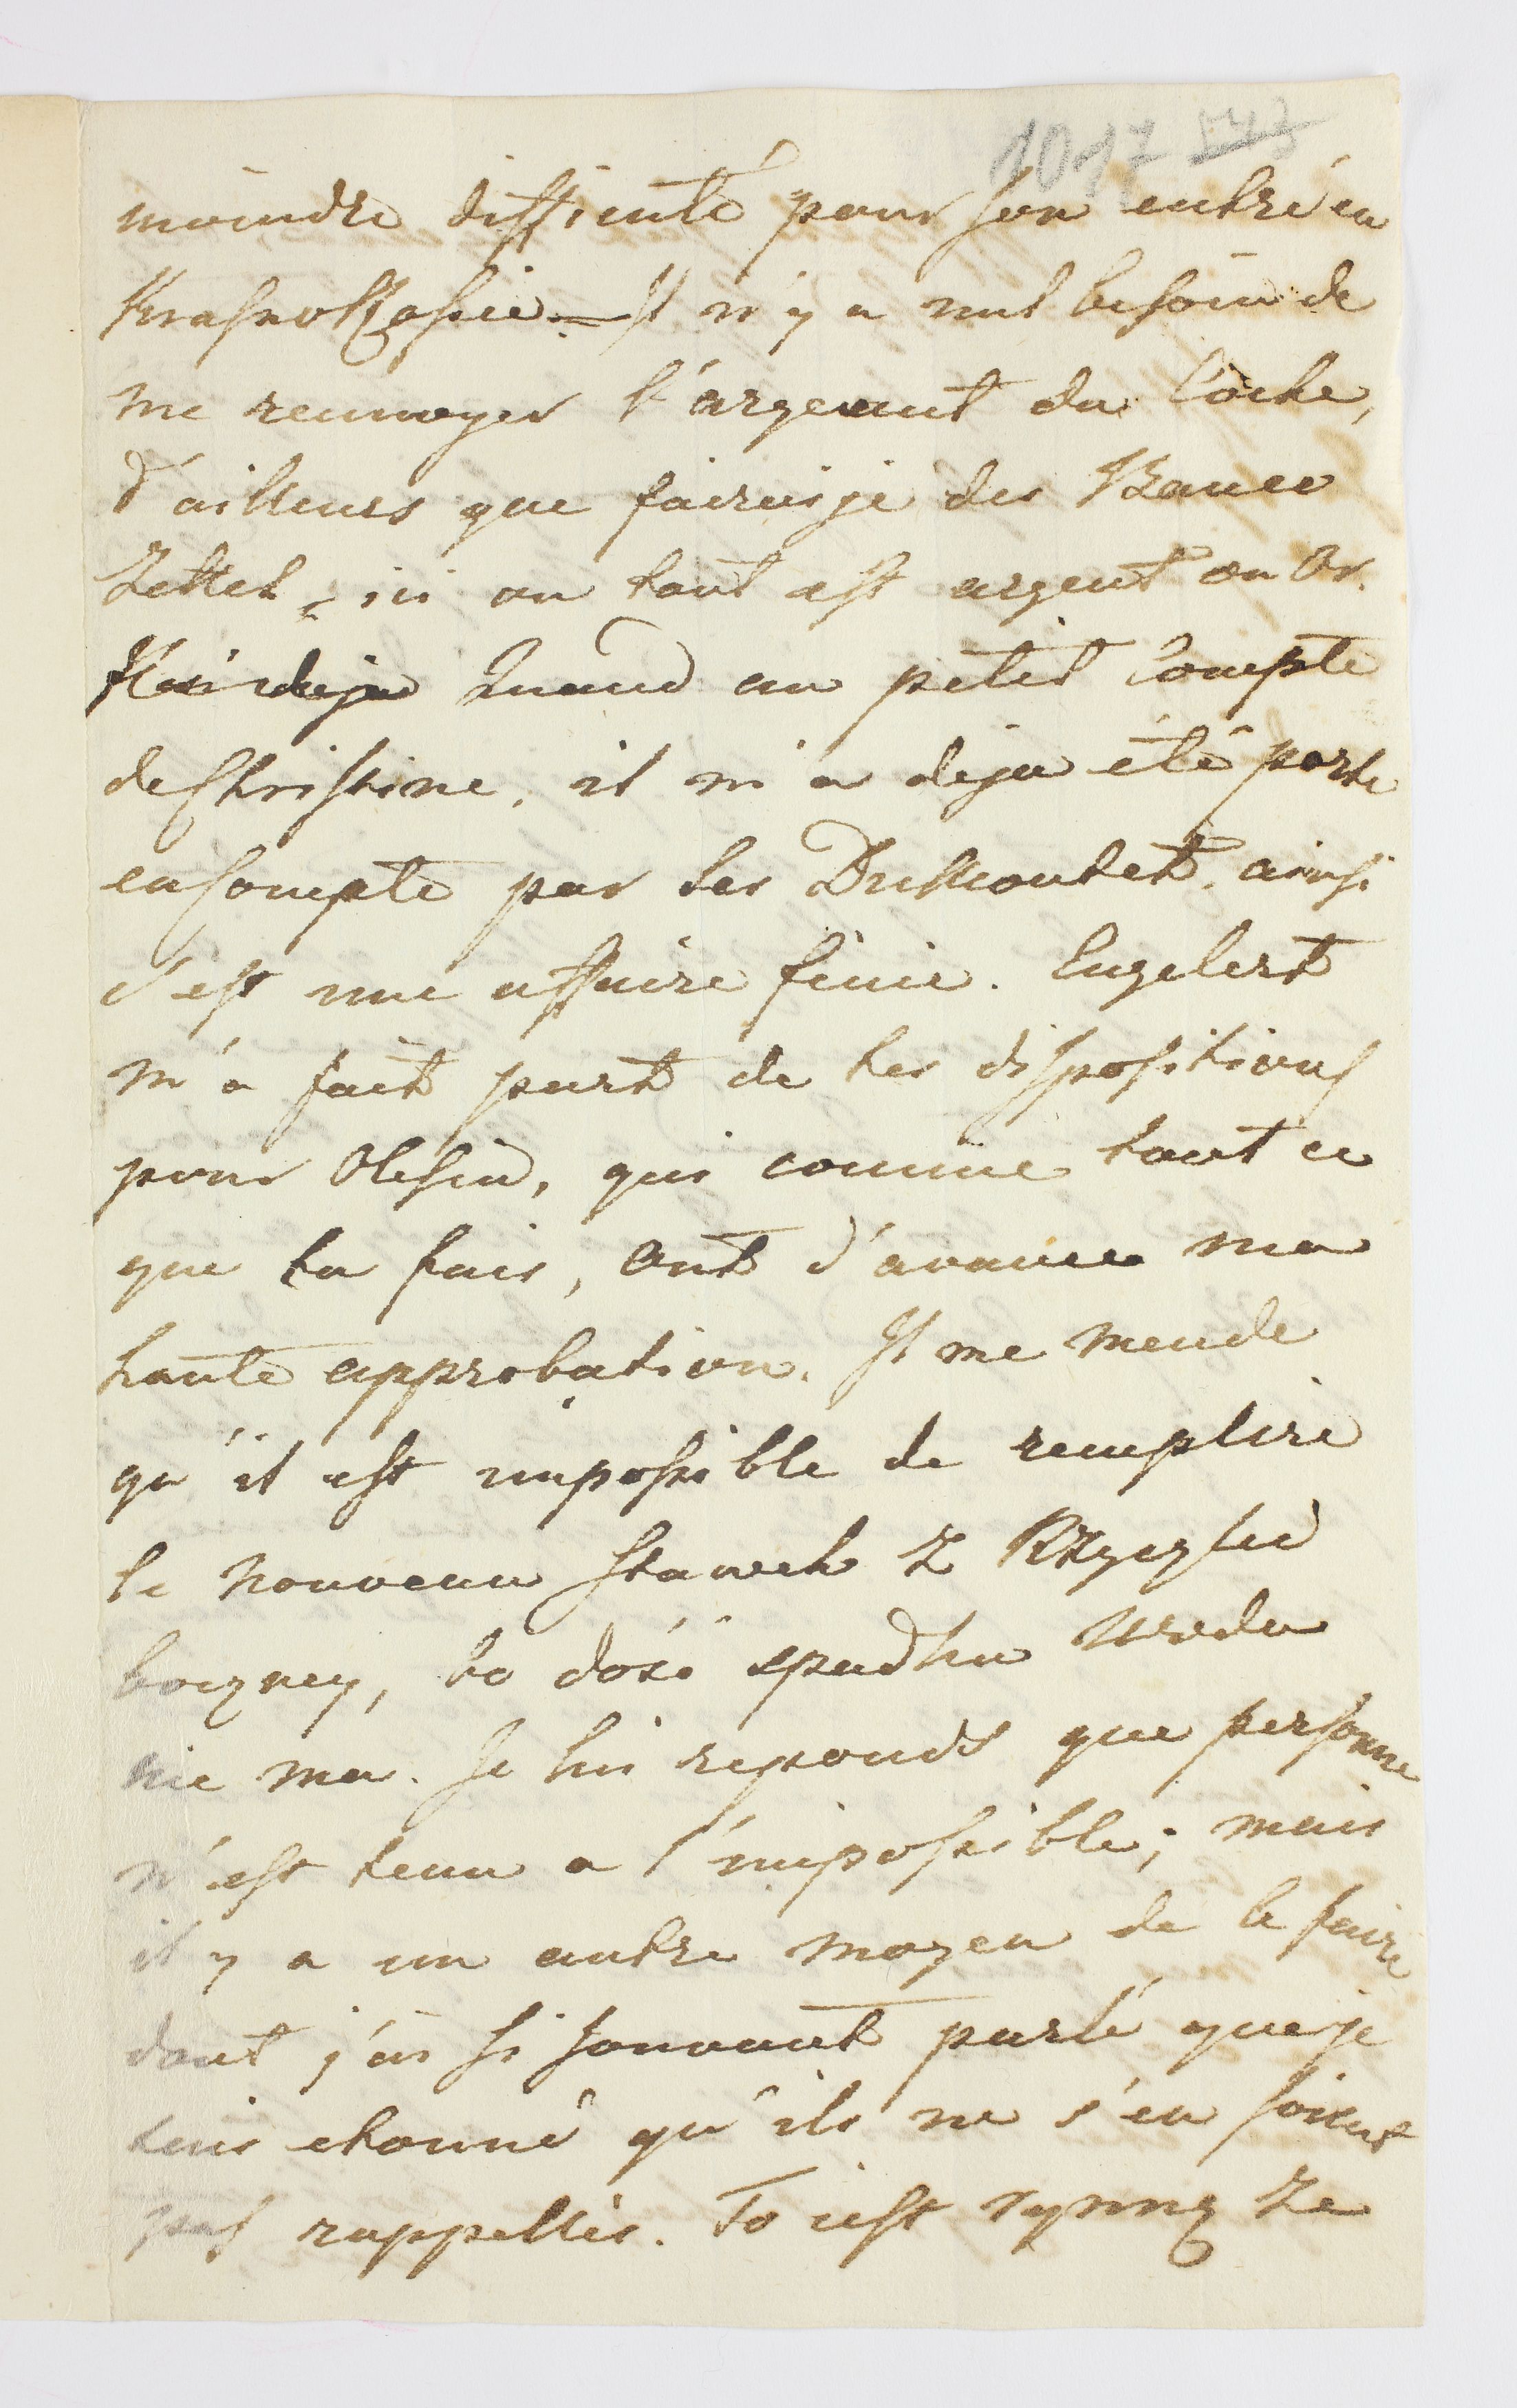 1017 547
moindre difficulté pour son entré en
il n'y a nul besoin de
me renvoyer l'argeant du Coche,
d'ailleurs que fairais je des Banco
Zettel, ici ou tout est argent ou Or.
Quand au petit Compte
de Christine, il m'a deja été porté
en Compte par les ainsi
c'est une affaire finie. Engelert
m'a fait part de tes dispositions
pour Olesin, qui comme tout ce
que tu fais, ont d'avance ma
haute approbation. Il me mende
qu'il est impossible de remplire
le nouveau Stawek z Rzyczki
boczney, bo dosć spadku
nie ma. Je lui reponds que personne
n'est tenu a l'impossible; mais
il y a un autre moyen de le faire
dont j'ai si souvant parlé que je
suis etonné qu'ils ne s'en soient
pas rappellés. To iest rynnę ze